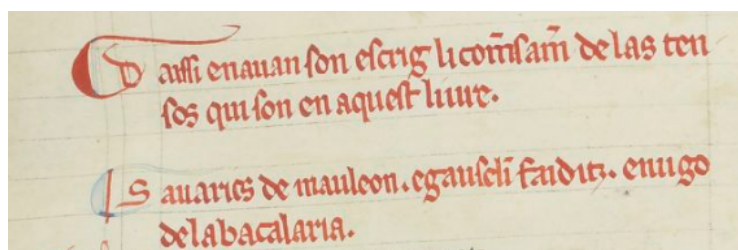 D aissi enauan son escrig li com̃sam̃ de las ten
sos qui son en aquest liure.
S auarics de mauleon. e gauselm̃ faiditz. e nugo
de la bacalaria.